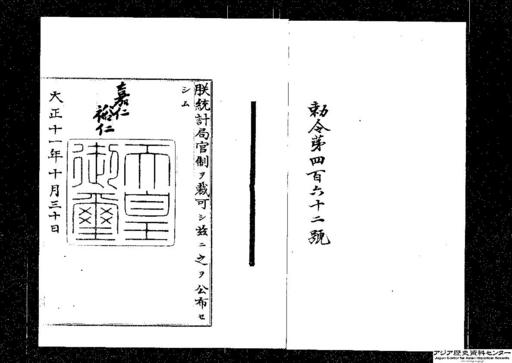 勅令第四百六十二號
朕統計局官制ヲ裁可シ茲ニ之ヲ公布セ
シム
嘉仁
裕仁
天皇
御璽
大正十一年十月三十日
アジア歴史資料センター
Japan Center for Asian Historical Records